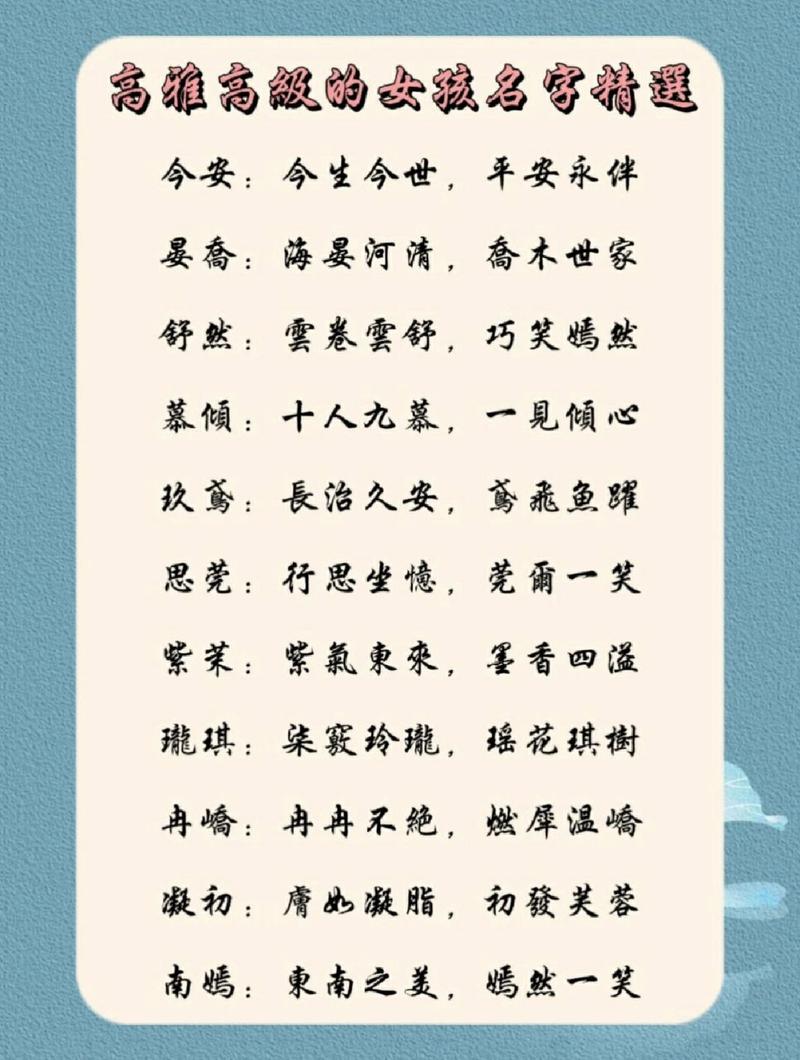 高雅高級的女孩名字精選
今安：今生今世，平安永伴
晏喬：海晏河清，喬木世家
舒然：雲卷雲舒，巧笑嫣然
慕傾：十人九慕，一見傾心
玖鳶：長治久安，鳶飛魚躍
思莞：行思坐憶，莞爾一笑
紫茉：紫氣東來，墨香四溢
瓏琪：柒竅玲瓏，瑶花琪樹
冉嶠：冉冉不絕，燃犀温嶠
凝初：膚如凝脂，初發芙蓉
南嫣：東南之美，嫣然一笑